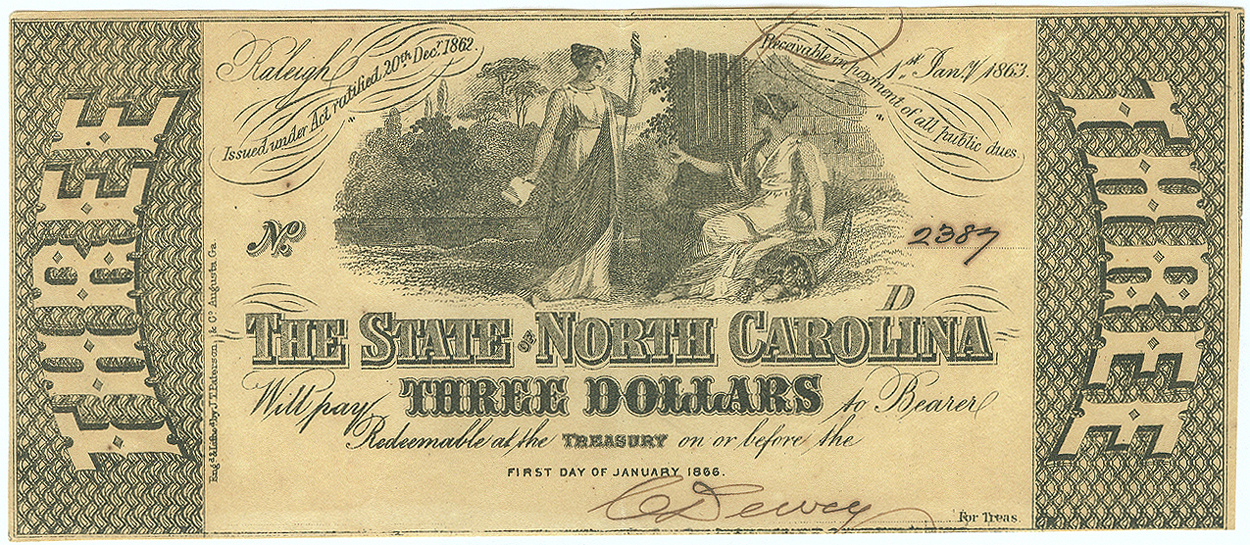 THREE
Raleigh
Issued under Act ratified 20th Decr. 1862.
Receivable in payment of all public dues
1st. Jany 1863.
No.
2387
D
THE STATE OF NORTH CAROLINA
Will pay THREE DOLLARS to Bearer
Redeemable at the TREASURY on or before the
FIRST DAY OF JANUARY 1866.
C Dewey
For Treas.
Engd. & Lithod. by J. T. Paterson & Co. Augusta Ga.
THREE